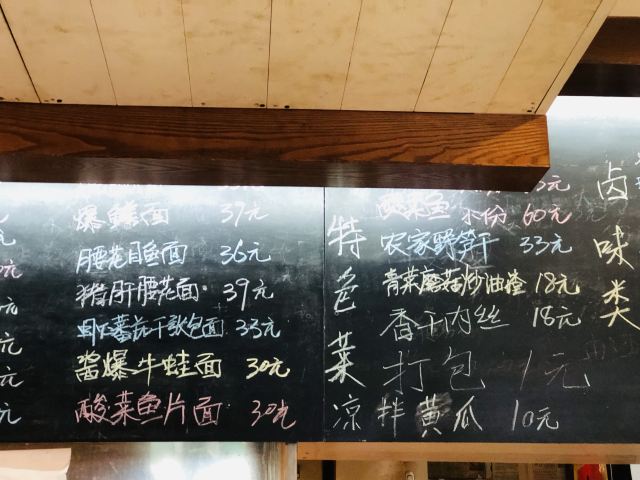 爆鳝面 37元
腰花目鱼面 36元
猪肝腰花面 39元
虾仁蕃茄 面 33元
酱爆牛蛙面 30元
酸菜鱼片面 30元
特色菜
酸菜鱼 小份 60元
农家野笋干 33元
青菜蘑菇炒油渣 18元
香干肉丝 18元
打包 1元
凉拌黄瓜 10元
卤味类